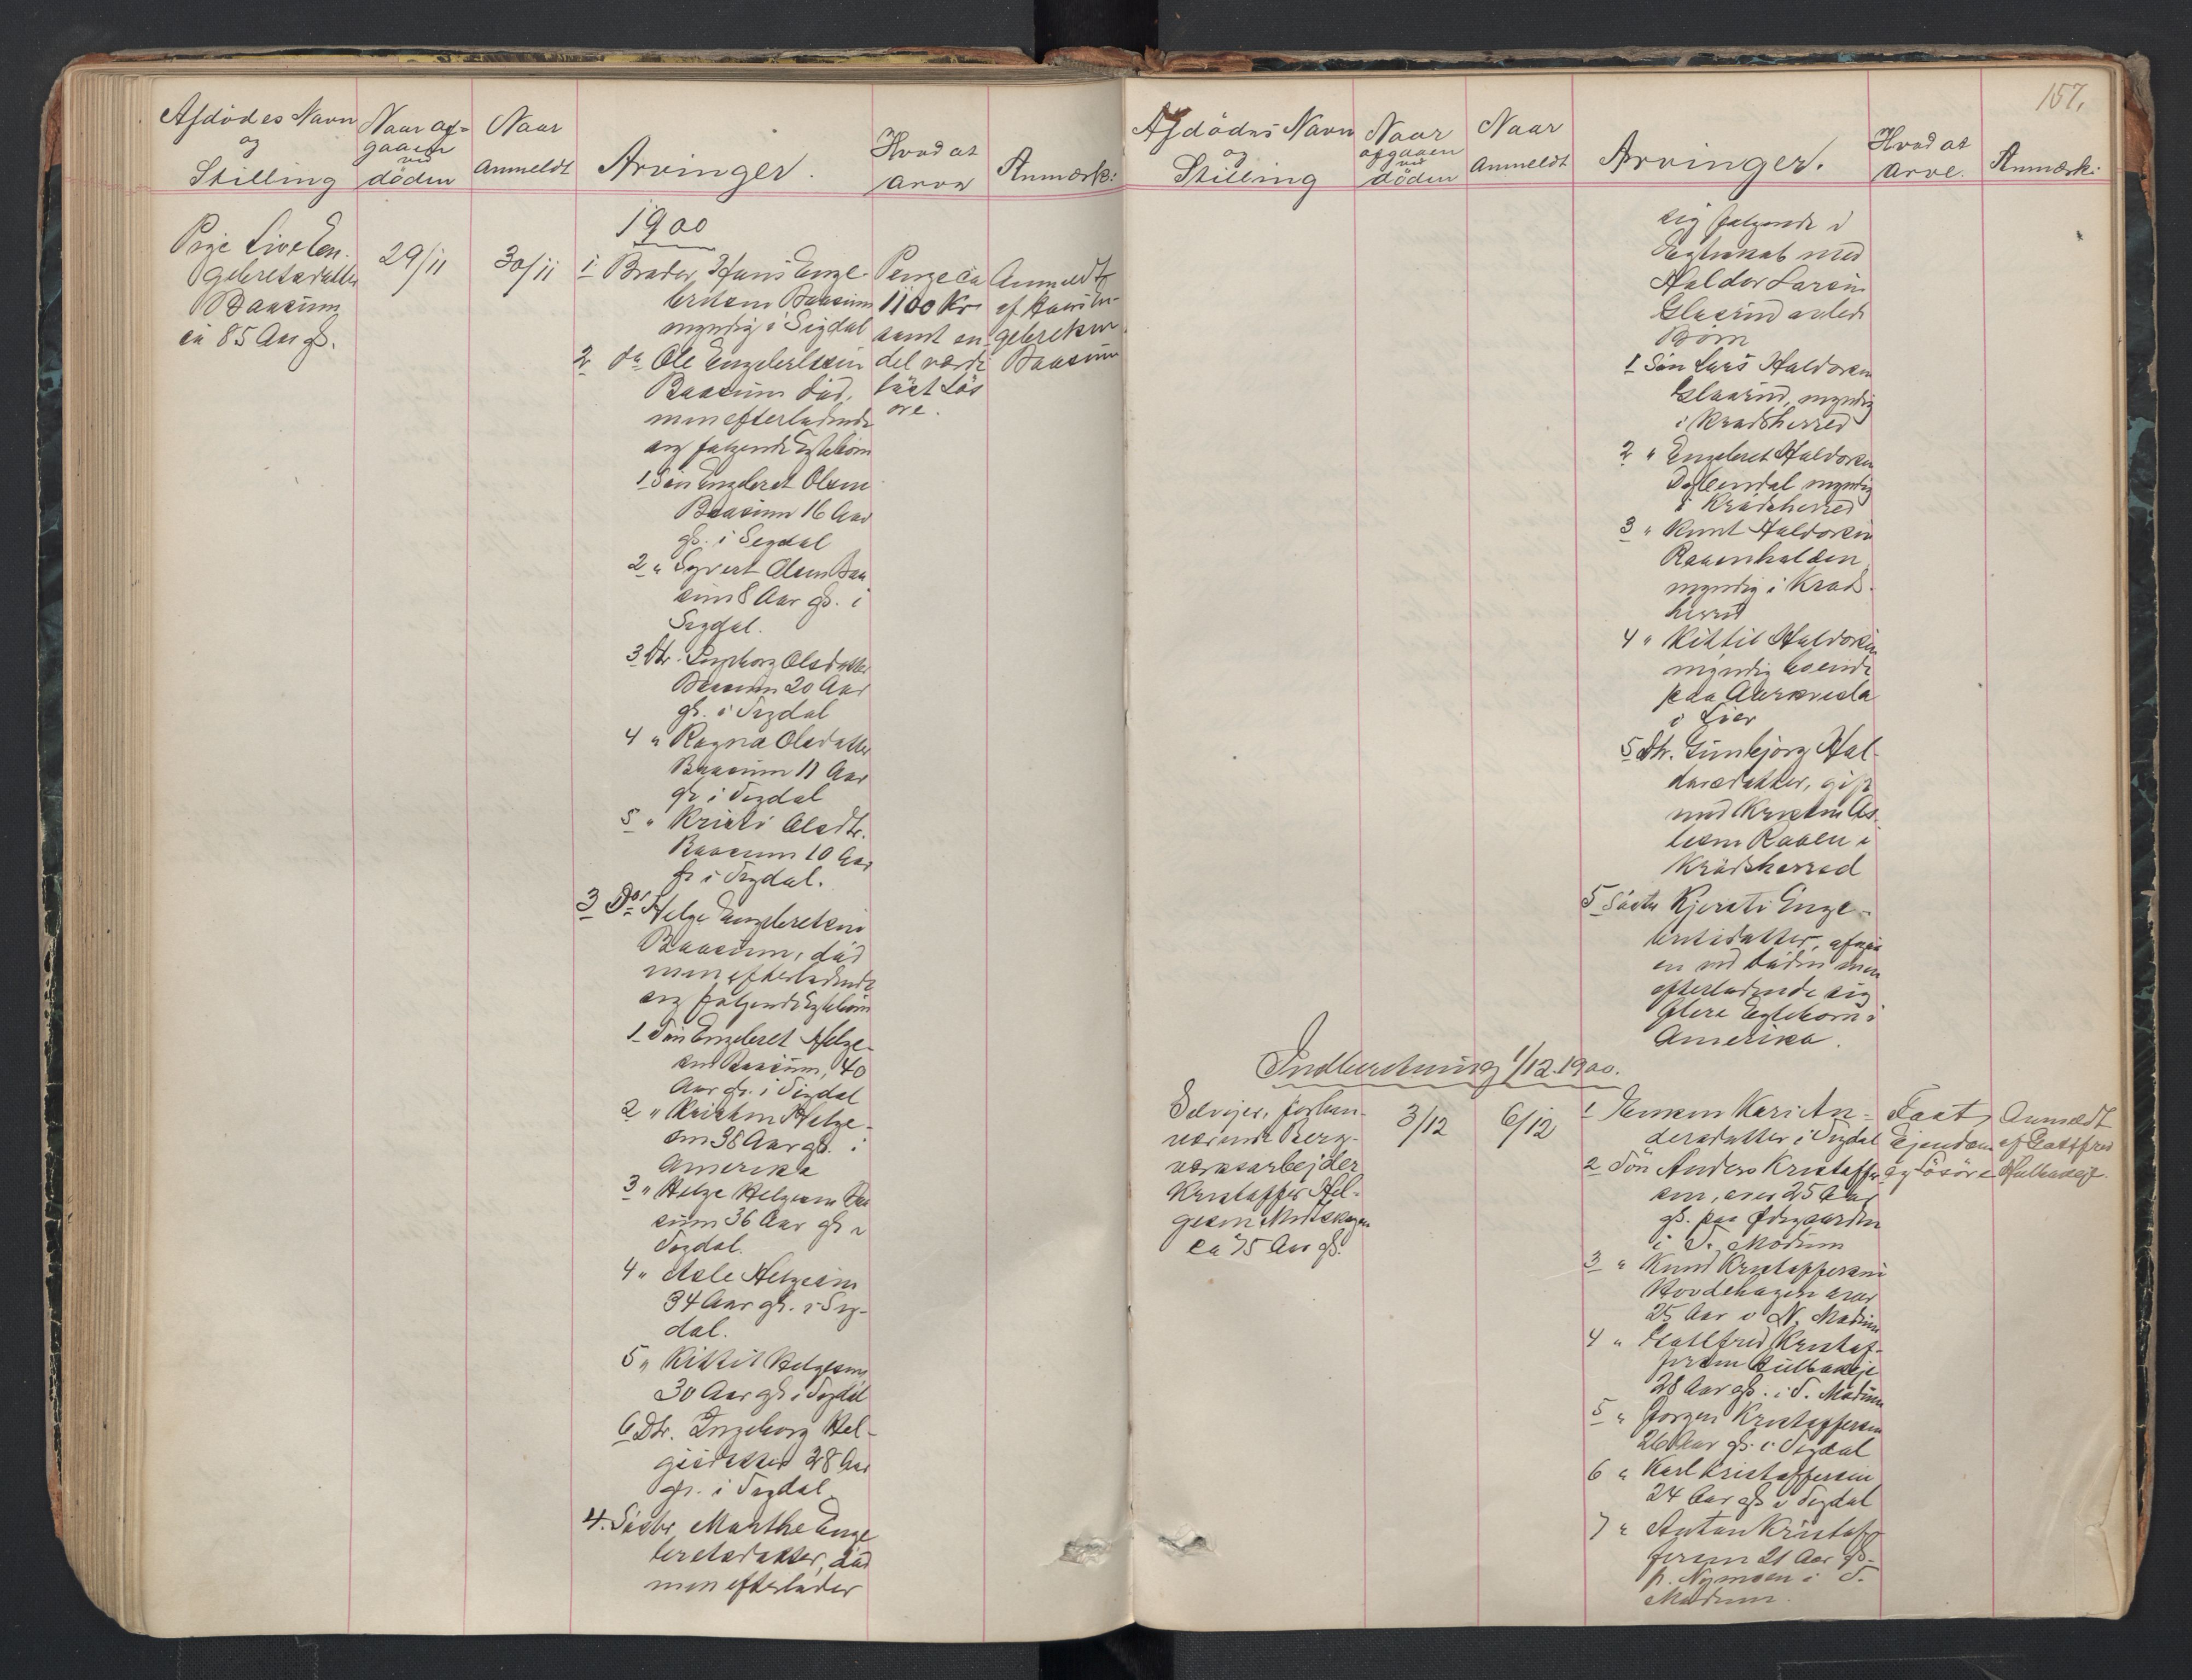 Afdödes Navn
og
Stilling
Naar af-
gaaen
ved
döden
Naar
Anmeldt
Arvinger.
Hvad at
arve
Anmærk:
1900
Pige Live En-
gebretsdatter
Baasum
ca 85 Aar gl.
29/11
30/11
1 Broder, Hans Enge-
bretsen Baasum
myndig i Sigdal
2 do Ole Engebretsen
Baasum död,
men efterladende
sig følgende Egtebörn
1 Sön Engebret Olsen
Baasum 16 Aar
gl. i Sigdal
2 " Syvert Olsen Baa
sum 8 Aar gl. i
Sigdal.
3 Dtr. Ingeborg Olsdatter
Baasum 20 Aar
gl. i Sigdal
4 " Ragna Olsdatter
Baasum 11 Aar
gl. i Sigdal
5 " Kristi Olsdtr.
Baasum 10 Aar
gl. i Sigdal.
3 Do Helge Engebretsen
Baasum, död
men efterladende
sig følgende Egtebörn
1 Sön Engebret Helge-
sen Baasum, 40
Aar gl. i Sigdal
2 " Kristen Helge-
sen 38 Aar gl. i
Amerika
3 " Helge Helgesen Baa
sum 36 Aar gl. i
Sigdal.
4 " Asle Helgesen
34 Aar gl. i Sig-
dal.
5 " Kittil Helgesen
30 Aar gl. i Sigdal
6 Dtr. Ingeborg Hel-
gesdatter 28 Aar
gl. i Sigdal
4. Söster, Marthe Enge
bretsdatter, död
men efterlader
Penge ca
1100 Kr
samt en
del værdi
löst Lös
öre.
Anmeldt
af Hans En-
gebretsen
Baasum
157.
Afdödes Navn
og
Stilling
Naar
afgaaen
ved
döden
Naar
Anmeldt
Arvinger.
Hvad at
arve.
Anmærk:
sig følgende i
Egteskab med
Haldor Larsen
Glesrud avlede
Börn
1 Sön Lars Haldorsen
Glesrud, myndig
i Krödsherred
2 " Engebret Haldorsen
myndig
i Krödsherred
3 " Knut Haldorsen
myndig i Kröds-
herred
4 " Kittil Haldorsen
myndig boende
paa
i Lier
5 Dtr. Gunbjörg Hal-
dorsdatter, gift
med Kristen As-
lesen Raaen i
Krödsherred
5 Söster Kjersti Enge-
bretsdatter, afgaa
en ved döden men
efterladende sig
flere Egtebörn i
Amerika.
Indberetning 1/12 1900.
Selvejer, forhen-
værende Berg-
værksarbejder
Kristoffer Hel-
gesen Midtskogen
ca 75 Aar gl.
3/12
6/12
1 Enken Kari An-
dersdatter i Sigdal
2 Sön Anders Kristoffer
sen, over 25 Aar
gl. paa Ødegaarden
i S. Modum
3 " Knud Kristoffersen
Hovdehagen over
25 Aar i N. Modum
4 " Gottfred Kristof-
fersen Hulbakeje
28 Aar gl. i S. Modum
5 " Jörgen Kristoffersen
26 Aar gl. i Sigdal
6 " Karl Kristoffersen
24 Aar gl. i Sigdal
7 " Anton Kristof-
fersen 21 Aar gl.
p. Nymoen i S.
Modum.
Fast
Ejendom
og Lösöre
Anmeldt
af Gottfred
Hulbakeje.